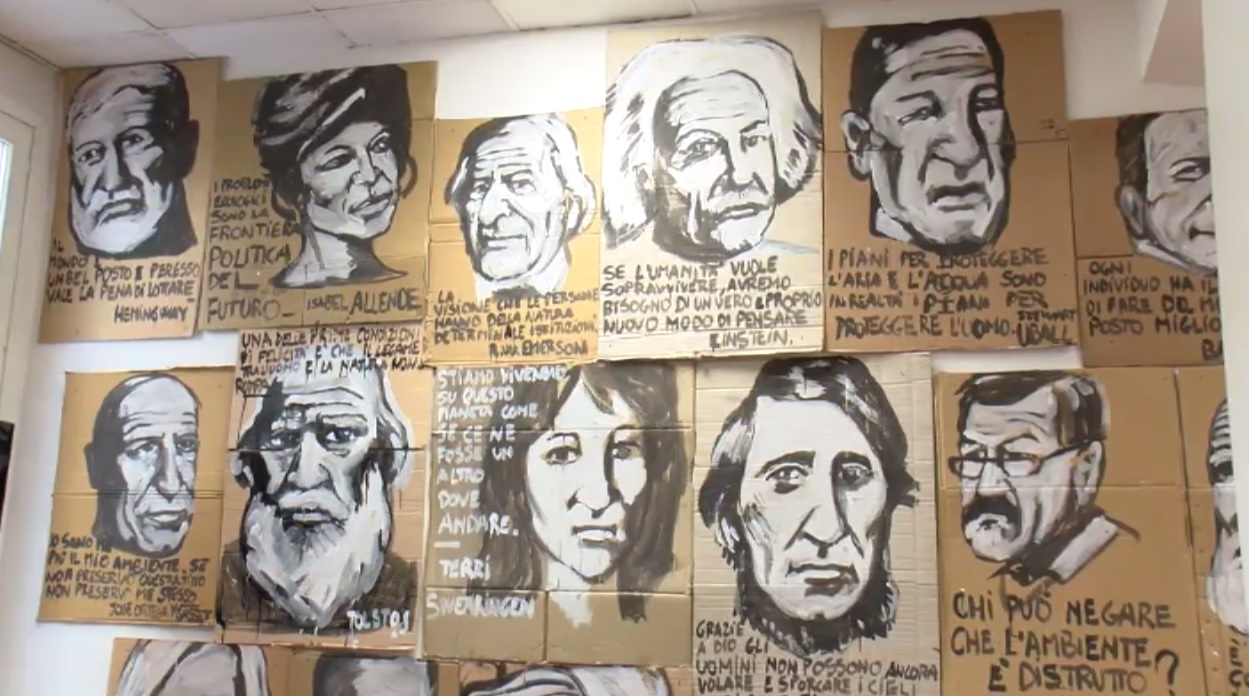 IL
MONDO È
UN BEL POSTO E PERESSO
VALE LA PENA DI LOTTARE
HEMINGWAY
I PROBLEMI
ECOLOGICI
SONO LA
FRONTIERA
POLITICA
DEL
FUTURO-
ISABEL ALLENDE
LA
VISIONE CHE LE PERSONE
HANNO DELLA NATURA
DETERMINA LE ISTITUZIONI
EMERSON
SE L'UMANITÀ VUOLE
SOPRAVVIVERE, AVREMO
BISOGNO DI UN VERO E PROPRIO
NUOVO MODO DI PENSARE
EINSTEIN.
I PIANI PER PROTEGGERE
L'ARIA E L'ACQUA SONO
IN REALTÀ I PIANI PER
PROTEGGERE L'UOMO- STEWART
UDALL
OGNI
INDIVIDUO HA IL
DI FARE DEL M
POSTO MIGLIO
BA
IO SONO
IL MIO AMBIENTE. SE
NON PRESERVO QUEST'ULTIMO
NON PRESERVO ME STESSO
JOSÉ ORTEGA Y GASSET
UNA DELLE PRIME CONDIZIONI
DI FELICITÀ È CHE IL LEGAME
TRA L'UOMO E LA NATURA NON
TOLSTOJ
STIAMO VIVENDO
SU QUESTO
PIANETA COME
SE CE NE
FOSSE UN
ALTRO
DOVE
ANDARE.
—
TERRI
SWEARINGEN
GRAZIE
A DIO GLI
UOMINI NON POSSONO ANCORA
VOLARE E SPORCARE I CIELI
CHI PUÒ NEGARE
CHE L'AMBIENTE
È DISTRUTTO?